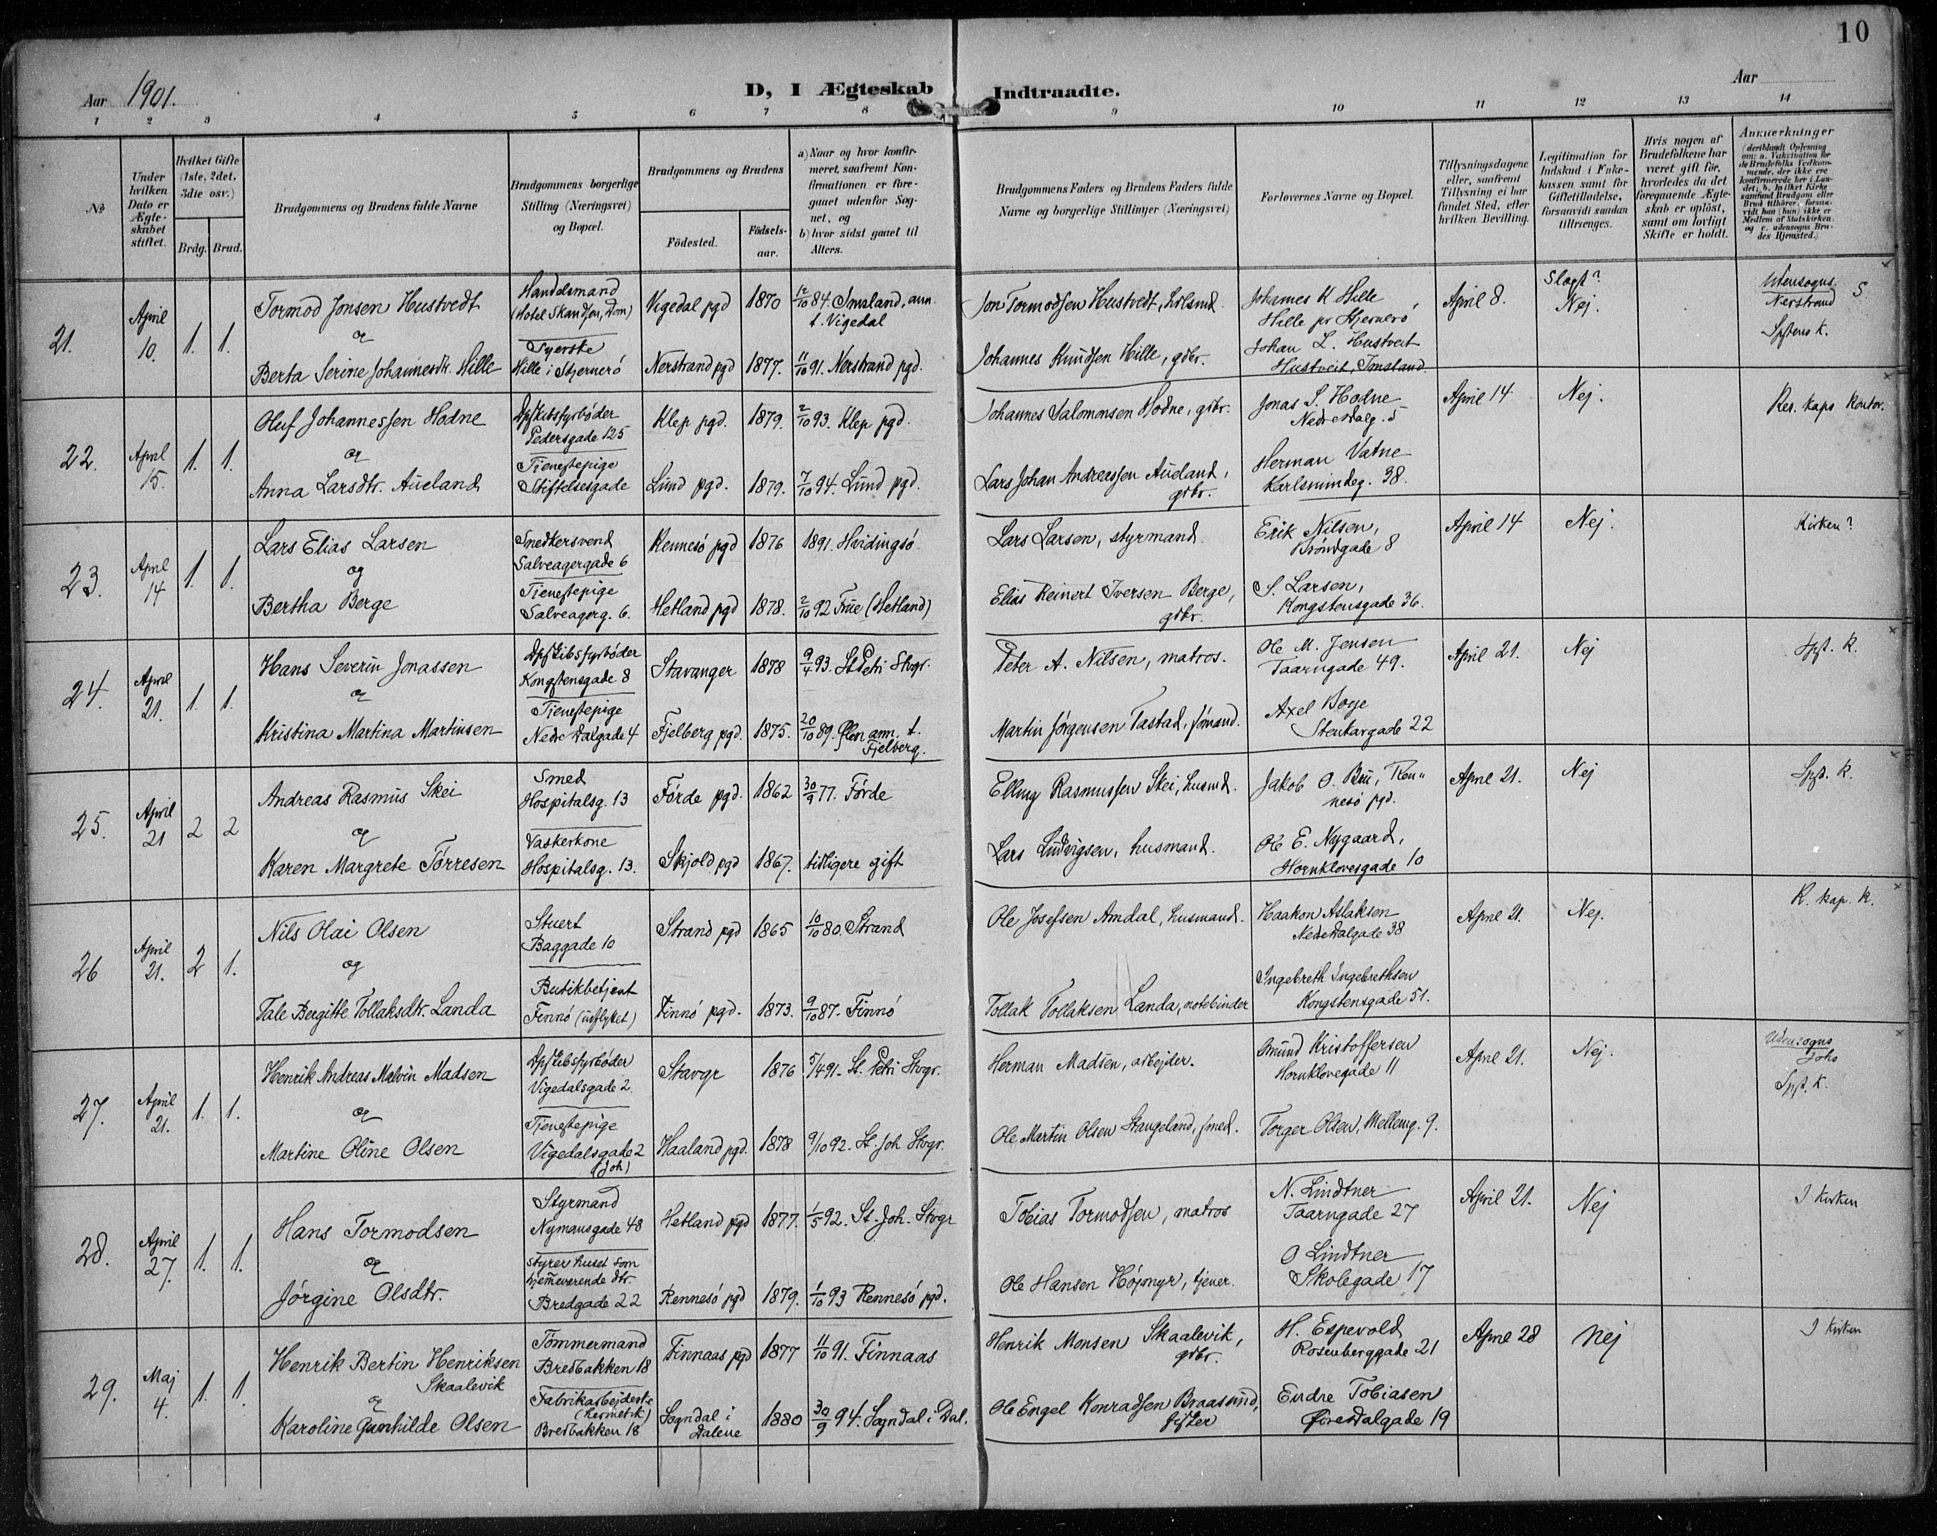 10
Aar 1901.
D, I Ægteskab Indtraadte.
Aar
1 2 3 4 5 6 7 8 9 10 11 12 13 14
№
Under hvilken Dato er Ægteskabet stiftet.
Hvilket Gifte (1ste, 2det, 3die osv.)
Brdg. Brud.
Brudgommens og Brudens fulde Navne
Brudgommens borgerlige Stilling (Næringsvei) og Bopæl.
Brudgommens og Brudens
Födested.
Födselsaar.
a) Naar og hvor konfirmeret, saafremt Konfirmationen er foregaaet udenfor Sognet, og
b) hvor sidst gaaet til Alters.
Brudgommens Faders og Brudens Faders fulde Navne og borgerlige Stillinger (Næringsvei)
Forlovernes Navne og Bopæl.
Tillysningsdagene eller, saafremt Tillysning ei har fundet Sted, efter hvilken Bevilling.
Legitimation for Indskud i Enkekassen samt for Giftetilladelse, forsaavidt saadan tiltrænges.
Hvis nogen af Brudefolkene har været gift før, hvorledes da det foregaaende Ægteskab er oplöst, samt om lovligt Skifte er holdt.
Anmerkninger
21. April 10. 1. 1.
Tormod Jonsen Hustvedt
og
Berta Serine Johannesdt. Hille
Handelsmand
(Hotel Skandfen, Dom)
Syerske
Hille i Stjernerö
Vigedal pgd 1870 12/10 84 Imsland, ann. t. Vigedal
Nerstrand pgd 1877. 11/10 91. Nerstrand pgd.
Jon Tormodsen Hustvedt,
Johannes Knudsen Hille, gdbr.
Johannes K Hille
Hille pr Stjernerö
Johan L. Hustveit
Hustveit, Imsland.
April 8.
Slagt?
Nej.
Udensogns
Nerstrand S
Spstens K.
22. April 15. 1. 1.
Oluf Johannessen Hodne
og
Anna Larsdtr. Aueland
Dpskibsfyrböder
Pedersgade 125
Tienestepige
Stiftelsesgade
Klep pgd. 1879. 2/10 93. Klep pgd.
Lund pgd. 1879. 7/10 94. Lund pgd.
Johannes Salomonsen Hodne, gdbr.
Lars Johan Andreassen Aueland, gdbr.
Jonas S. Hodne
Nedredalg. 5
Herman Vatne
Karlsmindeg. 38.
April 14
Nej.
Res. kaps kontor.
23. April 14 1. 1.
Lars Elias Larsen
og
Bertha Berge
Snedkersvend
Salveagergade 6
Tienestepige
Salveagerg. 6.
Rennesö pgd 1876 1891. Hvidingsö.
Hetland pgd 1878. 2/10 92 Frue (Hetland)
Lars Larsen, styrmand.
Elias Reinert Iversen Berge, gdbr.
Erik Nilsen,
Bröndgade 8
S. Larsen,
Kongstensgade 36.
April 14
Nej.
Kirken?
24. April 21. 1. 1.
Hans Severin Jonassen
og
Kristina Martina Martinsen
Dpskibsfyrböder
Kongstensgade 8
Tienestepige
Nedre Dalgade 4
Stavanger 1878 9/4 93. St Petri Stvgr.
Fjelberg pgd. 1875. 20/10 89. Ølen ann. t. Fjelberg.
Peter A. Nilsen, matros.
Martin Jørgensen Tastad, sömand.
Ole M. Jensen
Taarngade 49.
Axel Boge
Stenkargade 22
April 21.
Nej
Spst. K.
25. April 21 2 2
Andreas Rasmus Skei
og
Karen Margrete Torresen
Smed
Hospitalsg. 13
Vaskerkone
Hospitalsg. 13.
Förde pgd. 1862 30/9 77. Förde
Skjold pgd 1867. tidligere gift
Elling Rasmussen Skei, husmd.
Lars Ludvigsen, husmand.
Jakob O. Bru, Rennesö pgd.
Ole E. Nygaard,
Hornklovesgade 10
April 21.
Nej
Spst. K.
26 April 21. 2 1.
Nils Olai Olsen
og
Tale Bergitte Tollaksdtr. Landa
Stuert
Baggade 10
Butikbetjent
Finnö (udflyttet)
Strand pgd 1865 10/10 80. Strand
Finnö pgd. 1873. 9/10 87. Finnö
Ole Josefsen Amdal, husmand.
Tollak Tollaksen Landa, notebinder
Haakon Aslaksen
Nedredalgade 38
Ingebreth Ingebrethsen
Kongstensgade 51.
April 21.
Nej.
R. kap. K.
27. April 21. 1. 1.
Henrik Andreas Malvin Madsen
og
Martine Oline Olsen
Dpskibsfyrböder
Vigedalsgade 2
Tjenestepige
Vigedalsgade 2
(Joh)
Stavgr 1876 5/4 91. St. Petri Stvgr.
Haaland pgd. 1878 9/10 92. St. Joh Stvgr.
Herman Madsen, arbejder.
Ole Martin Olsen Stangeland, smed.
Gmund Kristoffersen
Hornklovegade 11
Torger Olsen, Mellemg. 9.
April 21.
Nej.
Udensogns
Johs
Spst. K.
28. April 27. 1. 1.
Hans Tormodsen
og
Jørgine Olsdtr.
Styrmand
Nymansgade 48
styrer huset som hjemmeværende dtr.
Bredgade 22
Hetland pgd 1877. 1/5 92. St. Joh. Stvgr
Rennesö pgd 1879. 1/10 93 Rennesö pgd.
Tobias Tormodsen, matros
Ole Hansen Højmyr, tjener.
N. Lindtner
Taarngade 27
O Lindtner
Skolegade 17
April 21.
Nej
I kirken
29. Maj 4. 1. 1.
Henrik Bertin Henriksen
Skaalevik
og
Karoline Gunhilde Olsen
Tömmermand
Bredbakken 18
Fabrikarbejderske
(hermetik)
Bredbakken 18
Finnaas pgd 1877 11/10 91. Finnaas
Sogndal i Dalene 1880 30/9 94. Sogndal i Dal.
Henrik Monsen Skaalevik, gdbr.
Ole Engel Konradsen Braasund, fisker
H. Espevold
Rosenberggade 21
Endre Tobiasen
Øvredalgade 19
April 28
Nej
I kirken